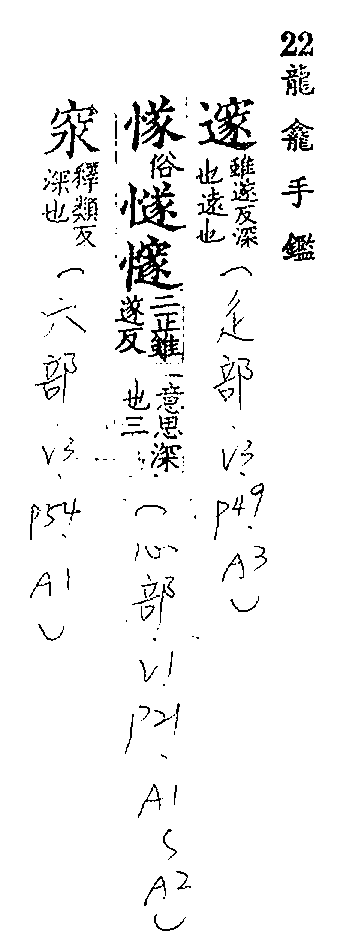 22龍龕手鑑
邃雖遂反深也遠也(辵部.V3.P49.A3)
俗二正雖遂反一意思深也三(心部.V1.P21.A1~A2)
釋類反深也(穴部.V3.P54.A1)